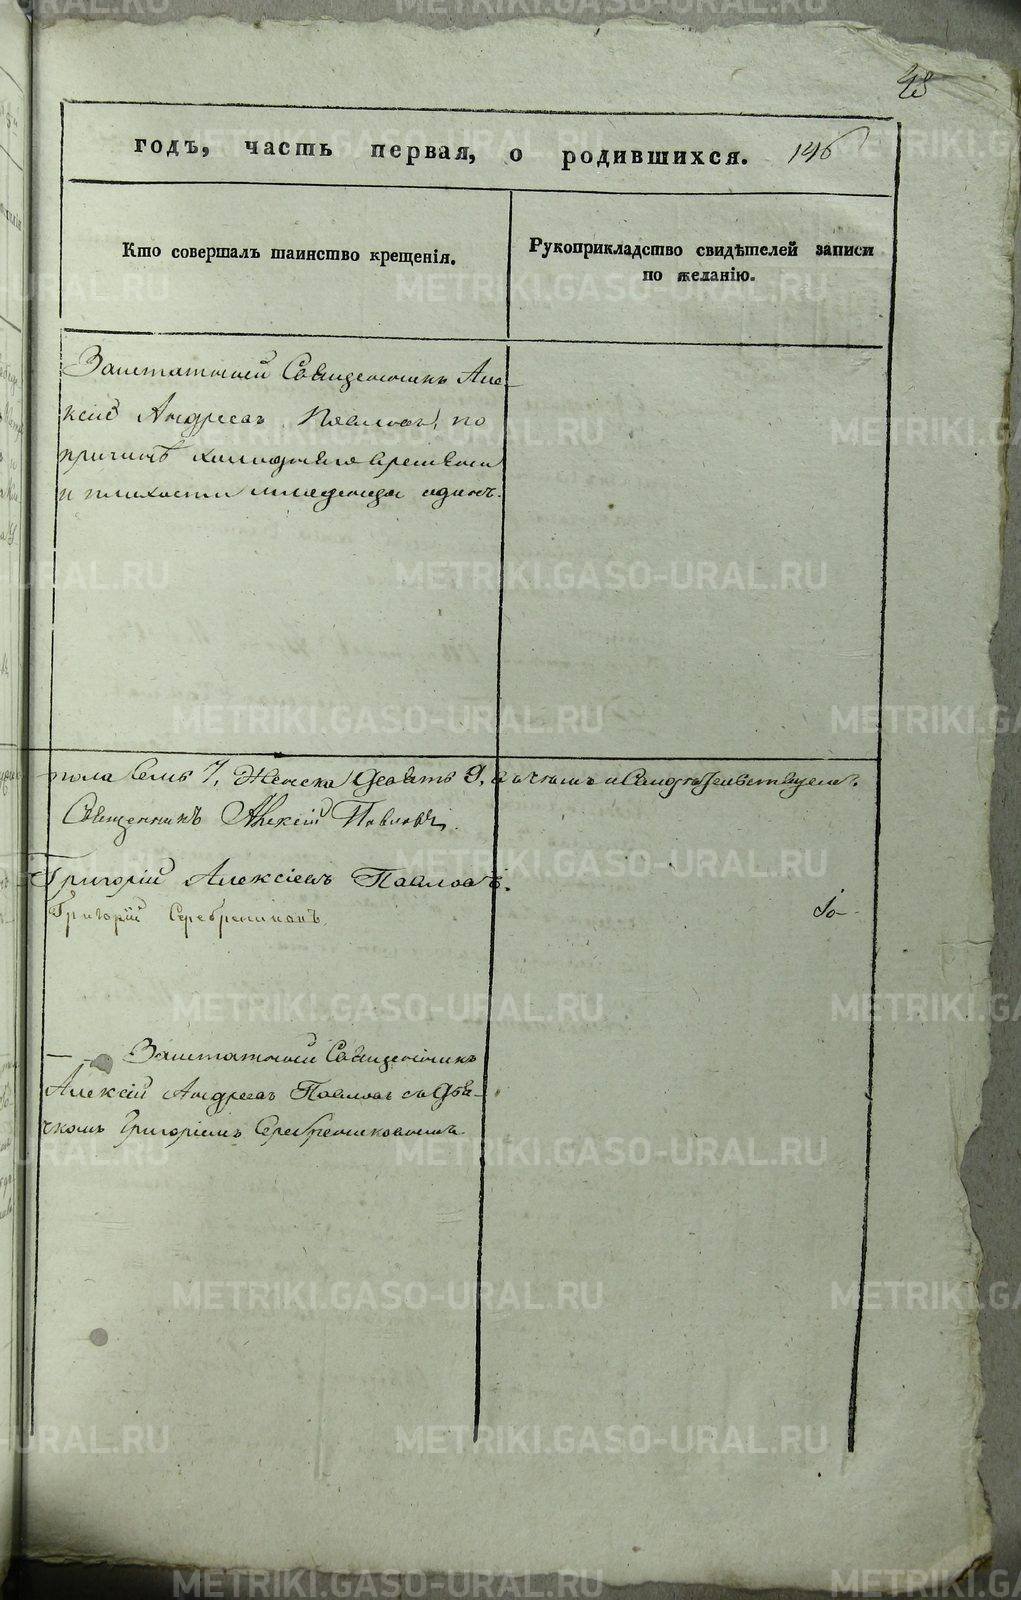 48
годъ, часть первая, о родившихся. 146
Кто совершалъ таинство крещенія.
Рукоприкладство свидѣтелей записи
по желанію.
Заштатный Священникъ Але-
ксій Андреевъ Павловъ, по
причинѣ холоднаго времени
и младенца одинъ.
пола семь 7, Женска девять 9, въ чемъ и
Священникъ Алексій Павловъ.
Григорій Алексіевъ Павловъ.
Григорій Серебрениковъ
Заштатный Священникъ
Алексій Андреевъ Павловъ съ дья-
чкомъ Григоріемъ Серебрениковымъ
METRIKI.GASO-URAL.RU